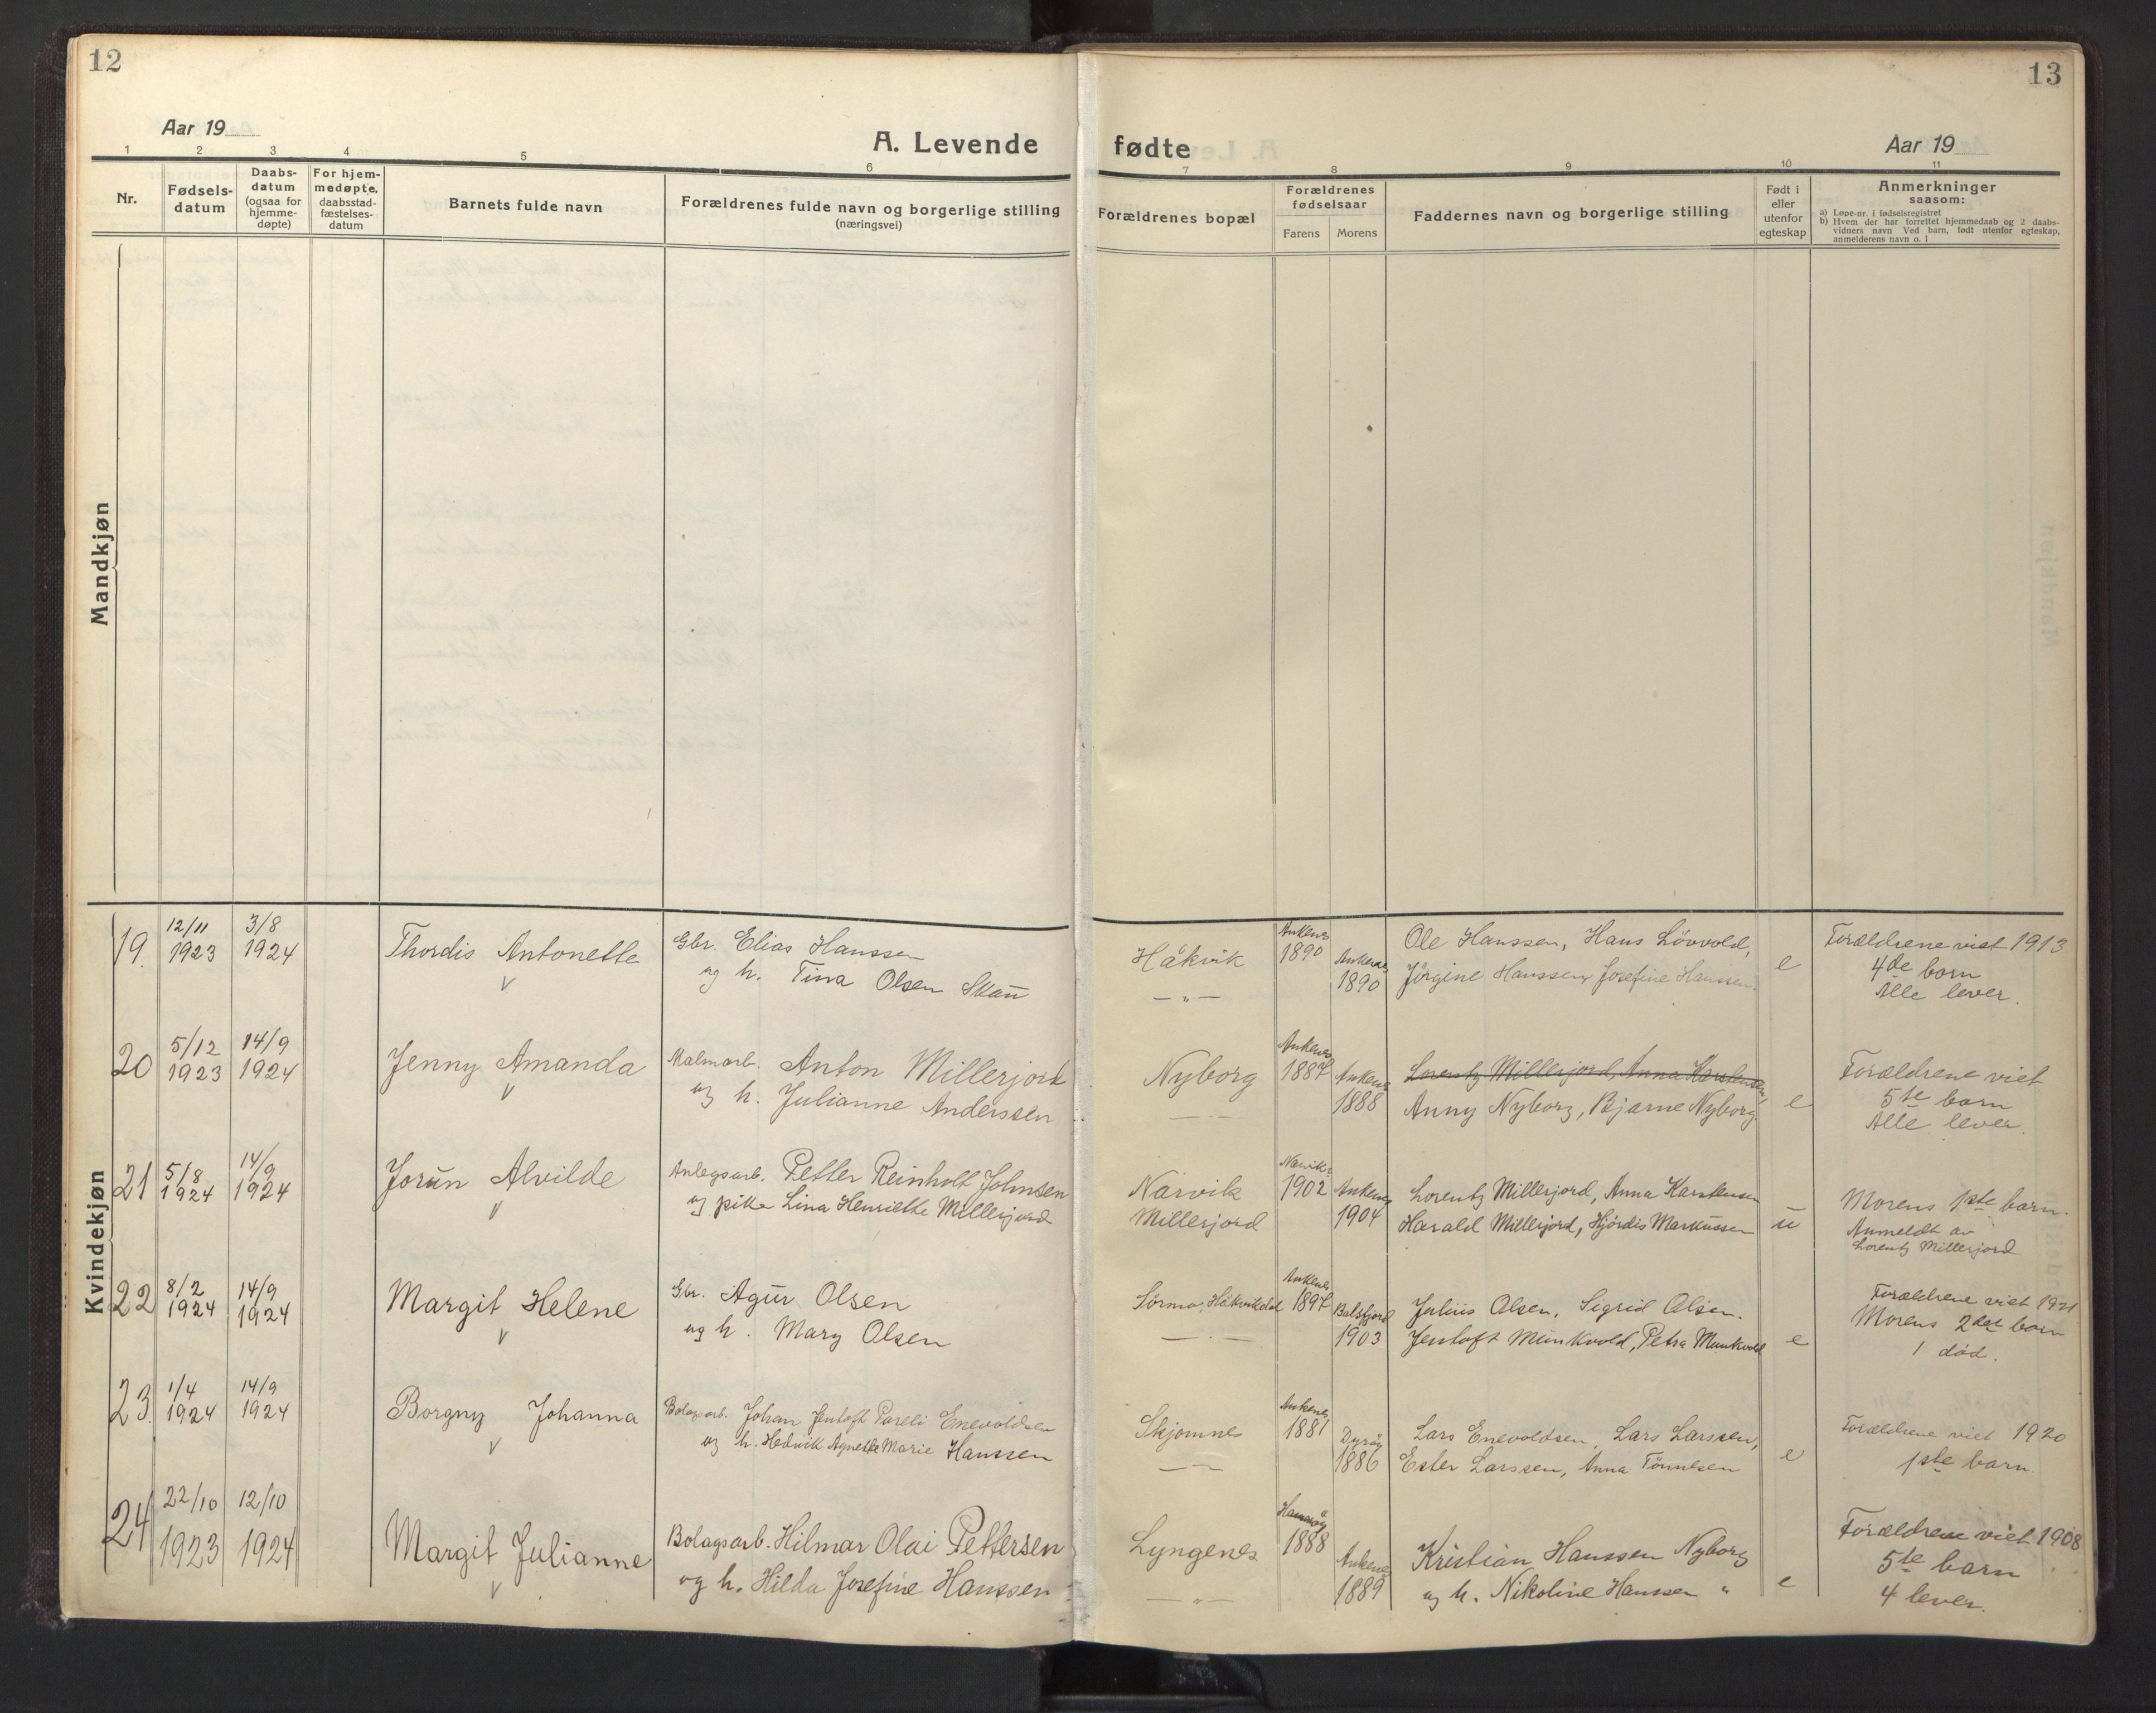 12
Aar 19
A. Levende
1 2 3 4 5 6
Nr.
Fødsels-
datum
Daabs-
datum
(ogsaa for
hjemme-
døpte)
For hjem-
medøpte,
daabsstad-
fæstelses-
datum
Barnets fulde navn
Forældrenes fulde navn og borgerlige stilling
(næringsvei)
Mandkjøn
Kvindekjøn
19. 12/11 1923 3/8 1924
Thordis Antonette
Gbr. Elias Hanssen
og h. Tina Olsen Skau
20 5/12 1923 14/9 1924
Jenny Amanda
Malmarb. Anton Millerjord
og h. Julianne Anderssen
21 5/8 1924 14/9 1924
Jorun Alvilde
Anlegsarb. Petter Reinholt Johnsen
og pike Lina Henriette Millerjord
22 8/2 1924 14/9 1924
Margit Helene
Gbr. Agur Olsen
og h. Mary Olsen
23. 1/4 1924 14/9 1924
Borgny Johanna
Bolagsarb. Johan Jentoft Pareli Enevoldsen
og h. Hedvik Agnethe Marie Hanssen
24 22/10 1923 12/10 1924
Margit Julianne
Bolagsarb. Hilmar Olai Pettersen
og h. Hilda Josefine Hanssen
13
fødte
Aar 19
7 8 9 10 11
Forældrenes bopæl
Forældrenes
fødselsaar
Farens Morens
Faddernes navn og borgerlige stilling
Født i
eller
utenfor
egteskap
Anmerkninger
saasom:
a) Løpe-nr. i fødselsregistret
b) Hvem der har forrettet hjemmedaab og 2 daabs-
vidners navn Ved barn, født utenfor egteskap,
anmelderens navn o. l
Håkvik
— " —
Ankenes
1890
Ankenes
1890
Ole Hanssen, Hans Lövvold,
Jörgine Hanssen, Josefine Hanssen.
e
Forældrene viet 1913
4de barn
Alle lever.
Nyborg
Ankenes
1887
Ankenes
1888
Lorentz Millerjord, Anna Karstensen,
Anny Nyborg, Bjarne Nyborg.
e
Forældrene viet
5te barn
Alle lever.
Narvik
Millerjord
Narvik
1902
Ankenes
1904
Lorentz Millerjord, Anna Karstensen
Harald Millerjord, Hjördis Markussen
u
Morens 1ste barn.
Anmeldt av
Lorentz Millerjord
Sörmo, Håkvikdal
Ankenes
1897
Balsfjord
1903
Julius Olsen, Sigrid Olsen.
Jentoft Munkvold, Petra Munkvold
e
Forældrene viet 1921
Morens 2det barn
1 död.
Skjomnes
Ankenes
1881
Dyröy
1886
Lars Enevoldsen, Lars Larssen,
Ester Larssen, Anna Tönnesen
e
Forældrene viet 1920
1ste barn
Lyngenes
— " —
Hamaröy
1888
Ankenes
1889
Kristian Hanssen Nyborg
og h. Nikoline Hanssen "
e
Forældrene viet 1908
5te barn
4 lever.